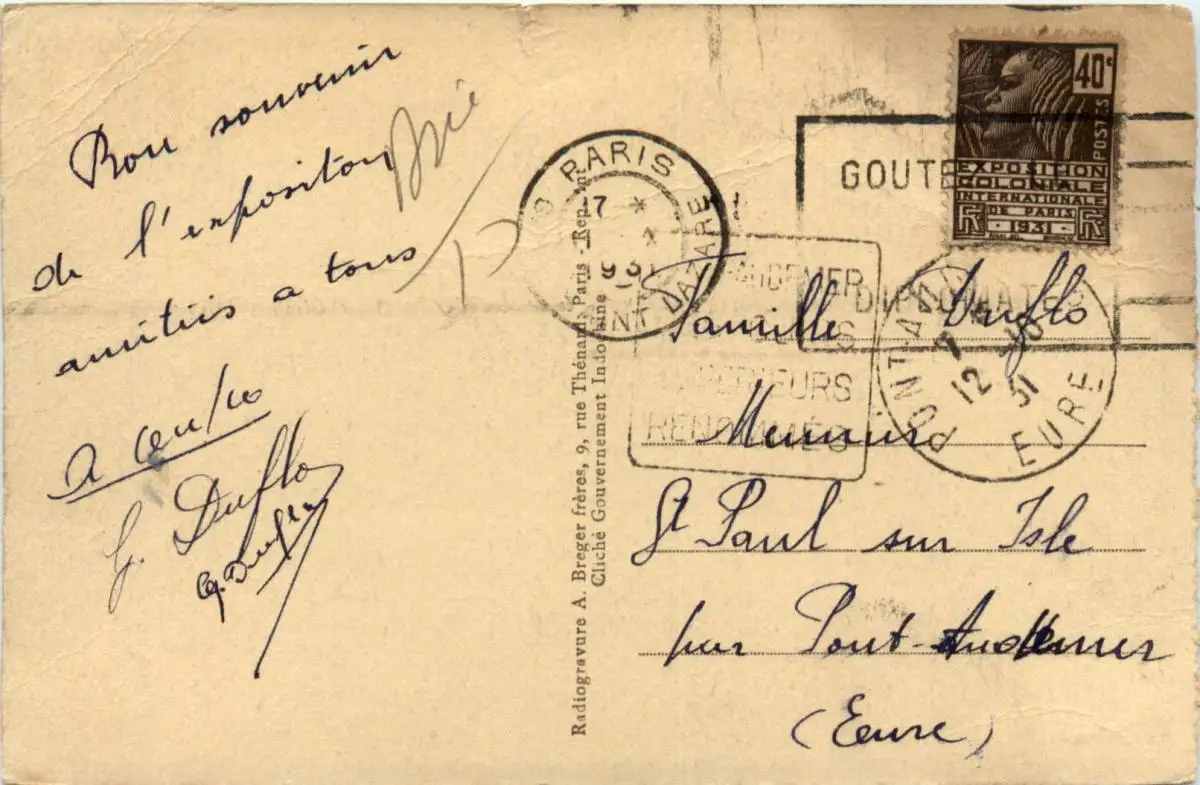 Bon souvenir
de l'expositon
amitiés a tous
G. Duflo
G. Duflo
Radiogravure A. Breger frères, 9, rue Thénard, Paris - Rep. int.
Cliché Gouvernement Indochine
PARIS
17 *
1931
ST LAZARE
GOUTE
DIPLOMATE
40c
POSTES
EXPOSITION
COLONIALE
INTERNATIONALE
DE PARIS
1931
RF RF
-AUDEMER
RENOMMÉS
PONT-AUD
7
12 10
31
EURE
Famille Duflo
St Paul sur Isle
par Pont-Audemer
(Eure)